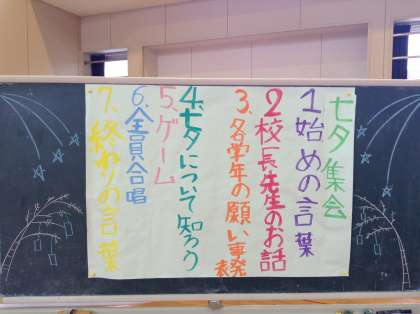 七夕集会
1.始めの言葉
2.校長先生のお話
3.各学年の願い事発表
4.七夕について知ろう
5.ゲーム
6.全員合唱
7.終わりの言葉